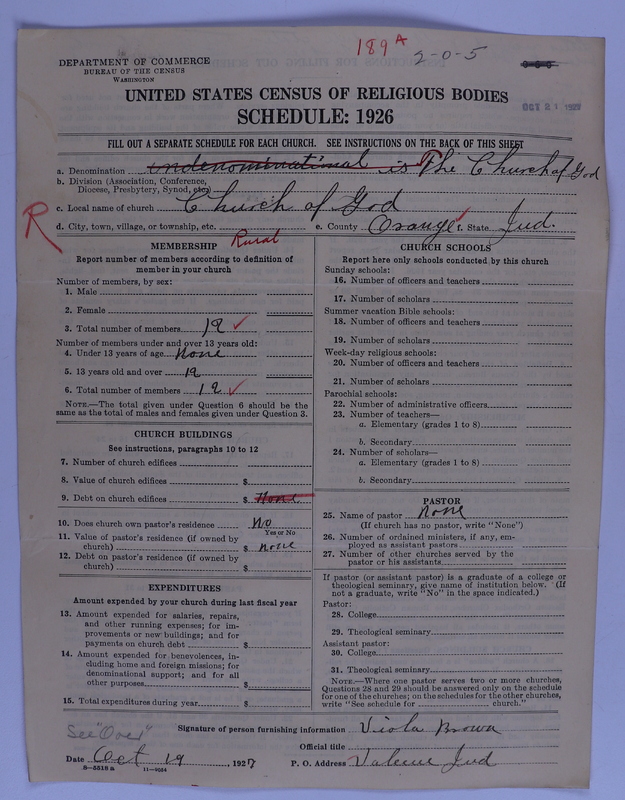 189 A
2-0-5
DEPARTMENT OF COMMERCE
BUREAU OF THE CENSUS
WASHINGTON
OCT 21 1927
UNITED STATES CENSUS OF RELIGIOUS BODIES
SCHEDULE: 1926
FILL OUT A SEPARATE SCHEDULE FOR EACH CHURCH. SEE INSTRUCTIONS ON THE BACK OF THIS SHEET
a. Denomination undenominational is The Church of God
b. Division (Association, Conference, Diocese, Presbytery, Synod, etc.)
c. Local name of church Church of God
R
d. City, town, village, or township, etc. Rural e. County Orange f. State Ind.
MEMBERSHIP
Report number of members according to definition of member in your church
Number of members, by sex:
1. Male
2. Female
3. Total number of members 12
Number of members under and over 13 years old:
4. Under 13 years of age None
5. 13 years old and over 12
6. Total number of members 12
NOTE.—The total given under Question 6 should be the
same as the total of males and females given under Question 3.
CHURCH BUILDINGS
See instructions, paragraphs 10 to 12
7. Number of church edifices
8. Value of church edifices $
9. Debt on church edifices $ None
10. Does church own pastor's residence No
Yes or No
11. Value of pastor's residence (if owned by
church) $ None
12. Debt on pastor's residence (if owned by
church) $
EXPENDITURES
Amount expended by your church during last fiscal year
13. Amount expended for salaries, repairs,
and other running expenses; for im-
provements or new buildings; and for
payments on church debt $
14. Amount expended for benevolences, in-
cluding home and foreign missions; for
denominational support; and for all
other purposes $
15. Total expenditures during year $
CHURCH SCHOOLS
Report here only schools conducted by this church
Sunday schools:
16. Number of officers and teachers
17. Number of scholars
Summer vacation Bible schools:
18. Number of officers and teachers
19. Number of scholars
Week-day religious schools:
20. Number of officers and teachers
21. Number of scholars
Parochial schools:
22. Number of administrative officers
23. Number of teachers—
a. Elementary (grades 1 to 8)
b. Secondary
24. Number of scholars—
a. Elementary (grades 1 to 8)
b. Secondary
PASTOR
25. Name of pastor None
(If church has no pastor, write "None")
26. Number of ordained ministers, if any, em-
ployed as assistant pastors
27. Number of other churches served by the
pastor or his assistants
If pastor (or assistant pastor) is a graduate of a college or
theological seminary, give name of institution below. (If
not a graduate, write "No" in the space indicated.)
Pastor:
28. College
29. Theological seminary
Assistant pastor:
30. College
31. Theological seminary
NOTE.—Where one pastor serves two or more churches,
Questions 28 and 29 should be answered only on the schedule
for one of the churches; on the schedules for the other churches,
write "See schedule for church."
See "Over"
Signature of person furnishing information Viola Brown
Official title
Date Oct 19, 1927 P. O. Address Valeene Ind
8—5518 a 11—9034